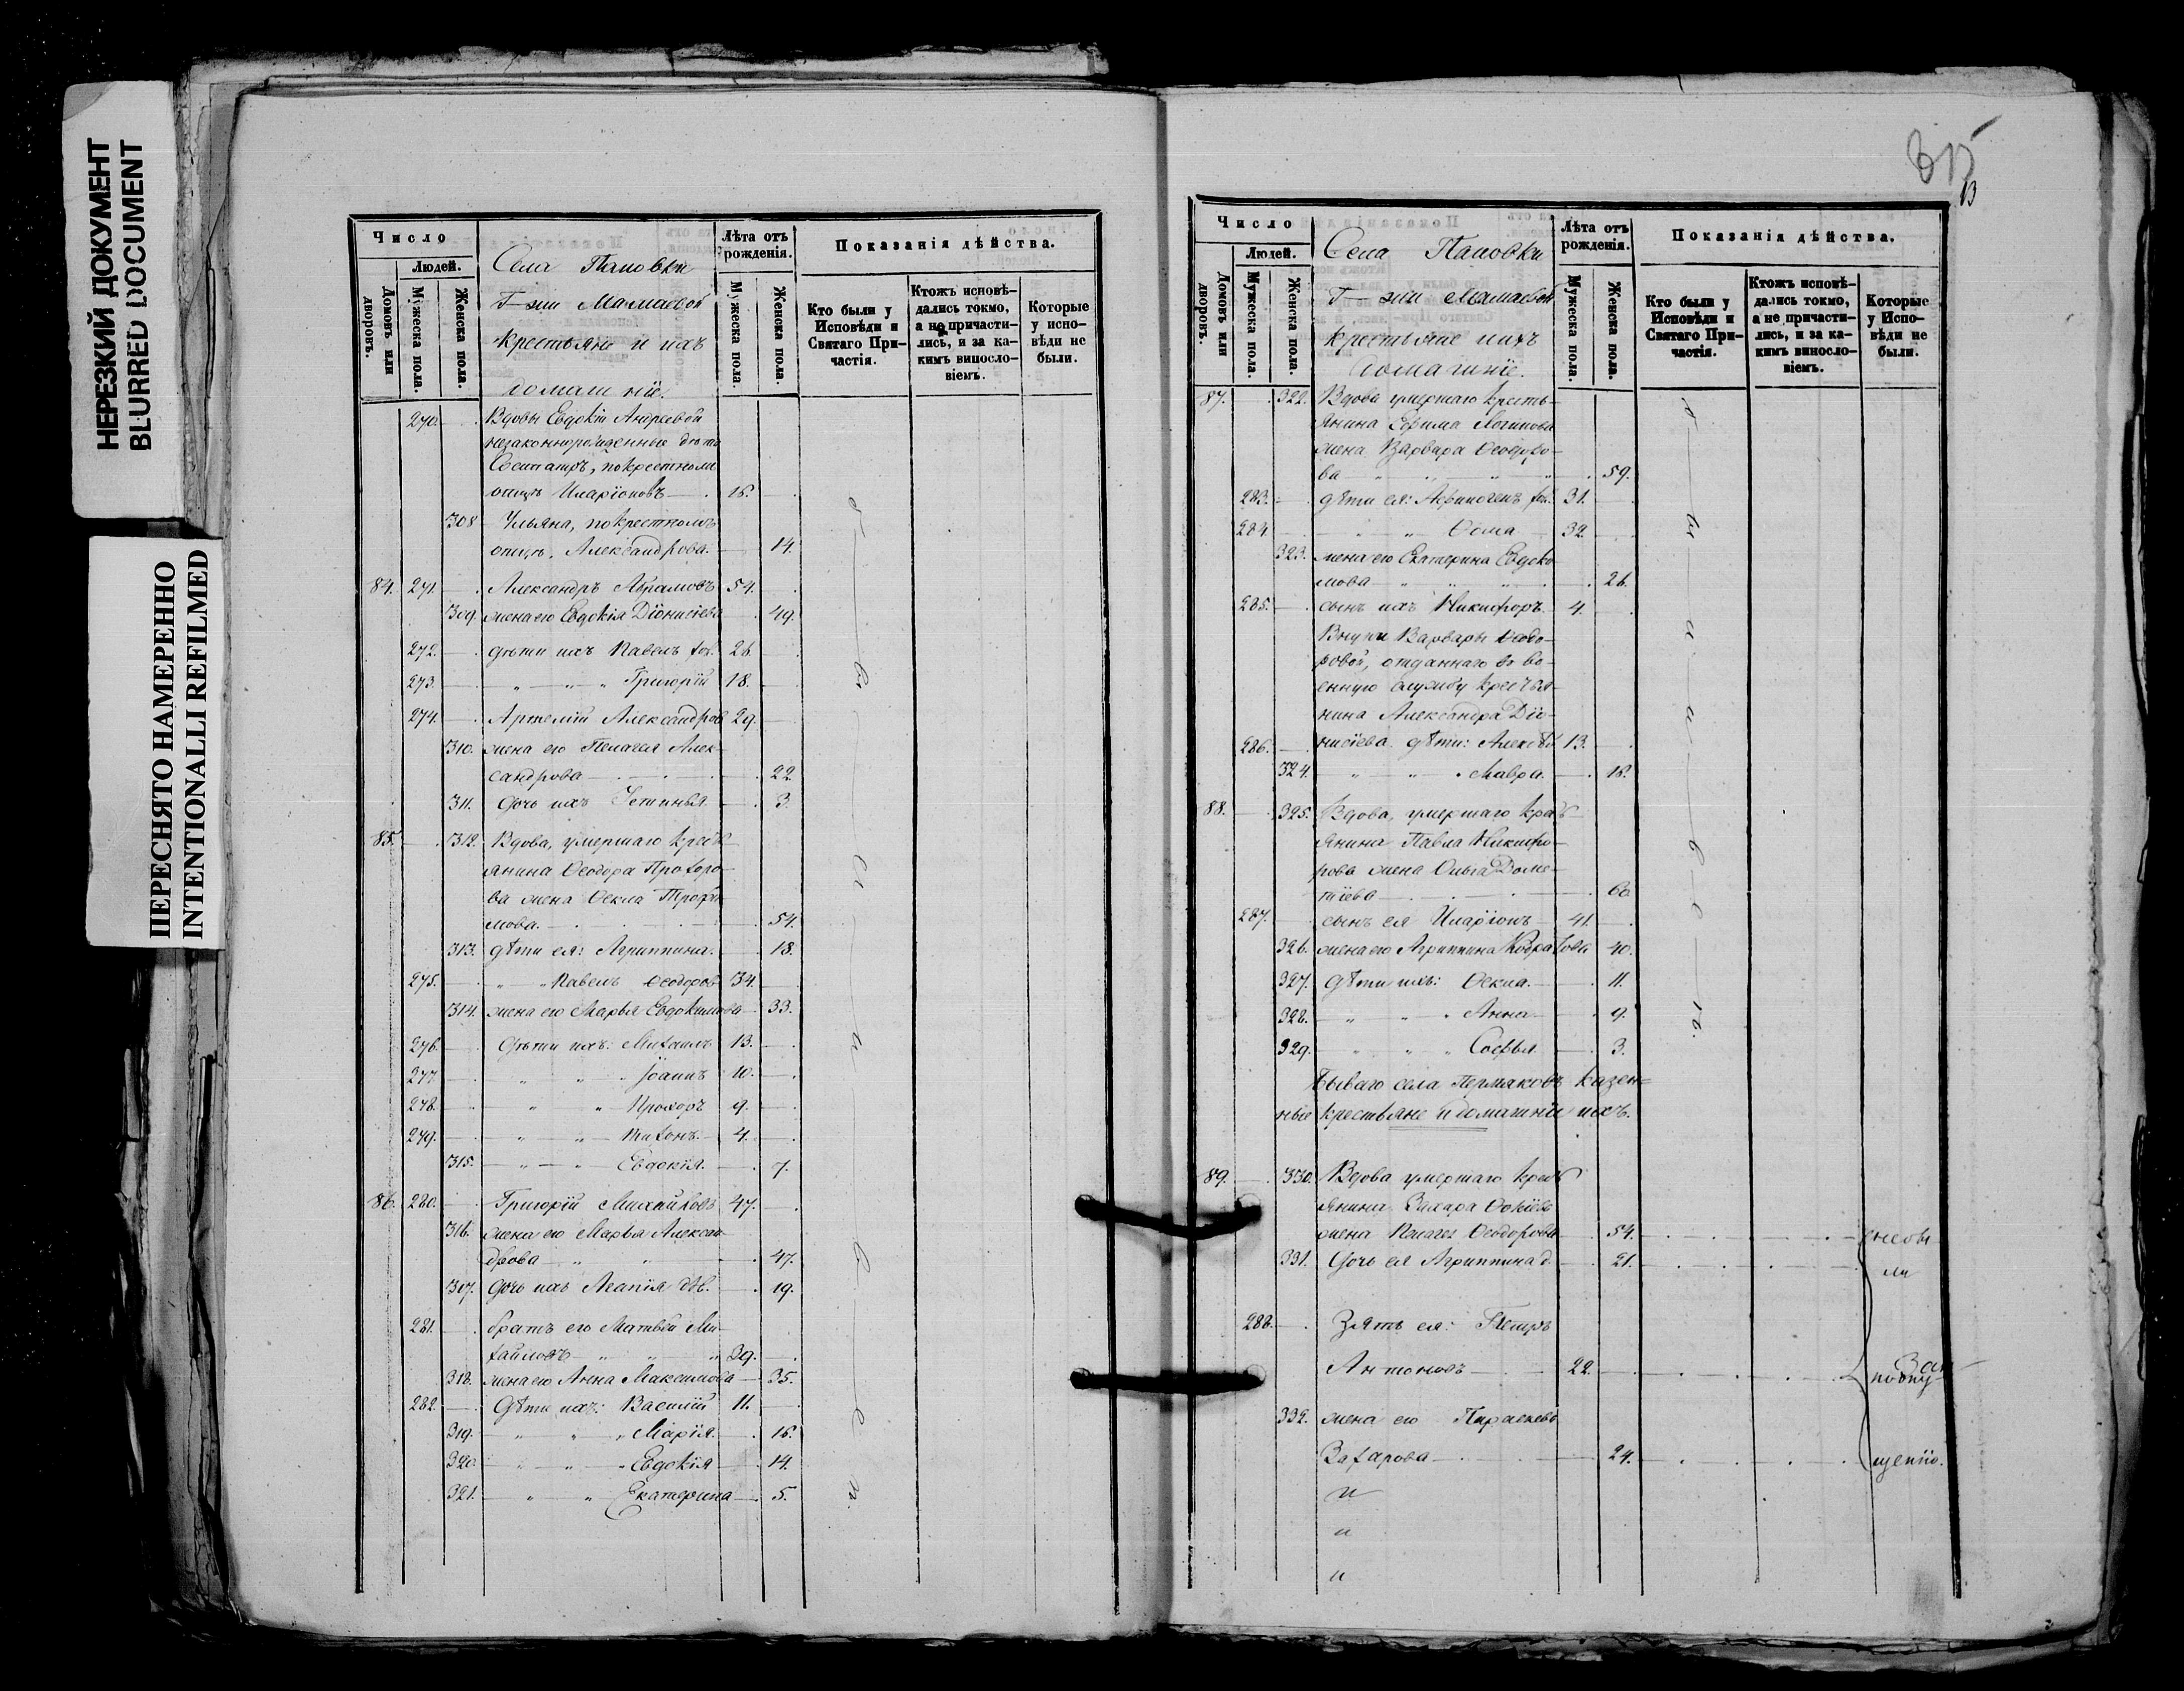 НЕРЕЗКИЙ ДОКУМЕНТ
BLURRED DOCUMENT
ПЕРЕСНЯТО НАМЕРЕННО
INTENTIONALLI REFILMED
Число
Людей.
Домовъ или дворовъ.
Мужеска пола.
Женска пола.
Села Пановки
Г-жи Мамаевой
крестьяне и ихъ
домашніе.
Лѣта отъ рожденія.
Мужеска пола.
Женска пола.
Показанія дѣйства.
Кто были у Исповѣди и Святаго Причастія.
Ктожъ исповѣдались токмо, а не причастились, и за какимъ винословіемъ.
Которые у исповѣди не были.
270. Вдовы Евдокіи Андреевой
незаконнорожденные дѣти
Сосипатръ, по крестному
отцу Иларіоновъ 16.
308 Ульяна, по крестному
отцу, Александрова. 14.
84. 271. Александръ Абрамовъ 54.
309. жена его Евдокія Діонисіева 49.
272. дѣти ихъ Павелъ хол. 26.
273. " " " Григорій 18.
274. Артемій Александров 29.
310. жена его Пелагея Алек-
сандрова 22.
311. дочь ихъ Устинья 3.
85. 312. Вдова, умершаго крест-
янина Ѳеодора Прохоро-
ва жена Ѳекла Трофи-
мова. 54.
313. дѣти ея: Агриппина. 18.
275. " " Павелъ Ѳеодоров 34.
314. жена его Марья Евдокимова 33.
276. Дѣти ихъ: Михаилъ 13.
277 " " Іоаннъ 10.
278. " " Прохоръ 9.
279. " " Тихонъ. 4.
315. " " Евдокія. 7.
86. 280. Григорій Михайловъ 47.
316. жена его Марья Алексан
дрова " " 47.
307. Дочь ихъ Агапія дѣв. 19.
281. братъ его Матвѣй Ми-
хайловъ " " " 39.
318. жена его Анна Максимова 35.
282. Дѣти ихъ: Василій 11.
319. " " " Марія. 16.
320. " " " Евдокія 14.
321. " " Екатерина 5.
315
13
Число
Людей.
Домовъ или дворовъ.
Мужеска пола.
Женска пола.
Села Пановки
Г-жи Мамаевой
крестьяне ихъ
домашніе.
Лѣта отъ рожденія.
Мужеска пола.
Женска пола.
Показанія дѣйства.
Кто были у Исповѣди и Святаго Причастія.
Ктожъ исповѣдались токмо, а не причастились, и за какимъ винословіемъ.
Которые у Исповѣди не были.
87. 322. Вдова умершаго кресть-
янина Ефима Логинова
жена Варвара Ѳеодоро-
ва " " " " 59.
283. дѣти ея: Аѳиногенъ хол. 31.
284. " " Ѳома 32.
323. жена его Екатерина Евдоки
мова " " " 26.
285. сынъ ихъ Никифоръ. 4.
Внуки Варвары Ѳеодо-
ровой, отданнаго въ во-
енную службу крестья-
нина Александра Діо-
286. нисіева дѣти: Алексѣй 13.
324. " " " Мавра. 16.
88. 325. Вдова, умершаго крест
янина Павла Никифо-
рова жена Ольга Доме-
тіева 60
287. сынъ ея Иларіонъ 41.
326. жена его Агриппина Кодратова 40.
327. Дѣти ихъ: Ѳекла. 11.
328. " " " Анна 9.
329. " " " Софья 3.
Бываго села Пермяковъ казен-
ные крестьяне и домашніи ихъ.
89. 330. Вдова умершаго крест
янина Захара Ѳокіевъ
жена Пелагея Ѳеодорова 54. небы
331. Дочь ея Агриппина д. 21. ли
288. Зять ея: Петръ
Антоновъ 22. за
поопу
332. жена его Параскева
Захарова 24. щенію.
"
"
"